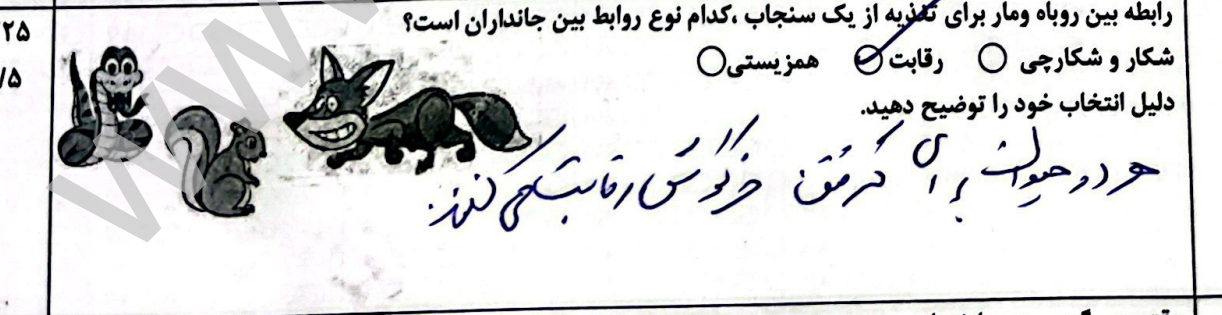 رابطه بین روباه ومار برای تغذیه از یک سنجاب ،کدام نوع روابط بین جانداران است؟
شکار و شکارچی ○ رقابت ○ همزیستی ○
دلیل انتخاب خود را توضیح دهید.
هر دو حیوان برای گرفتن خرگوش رقابت می کنند.
۲۵
/۵
www